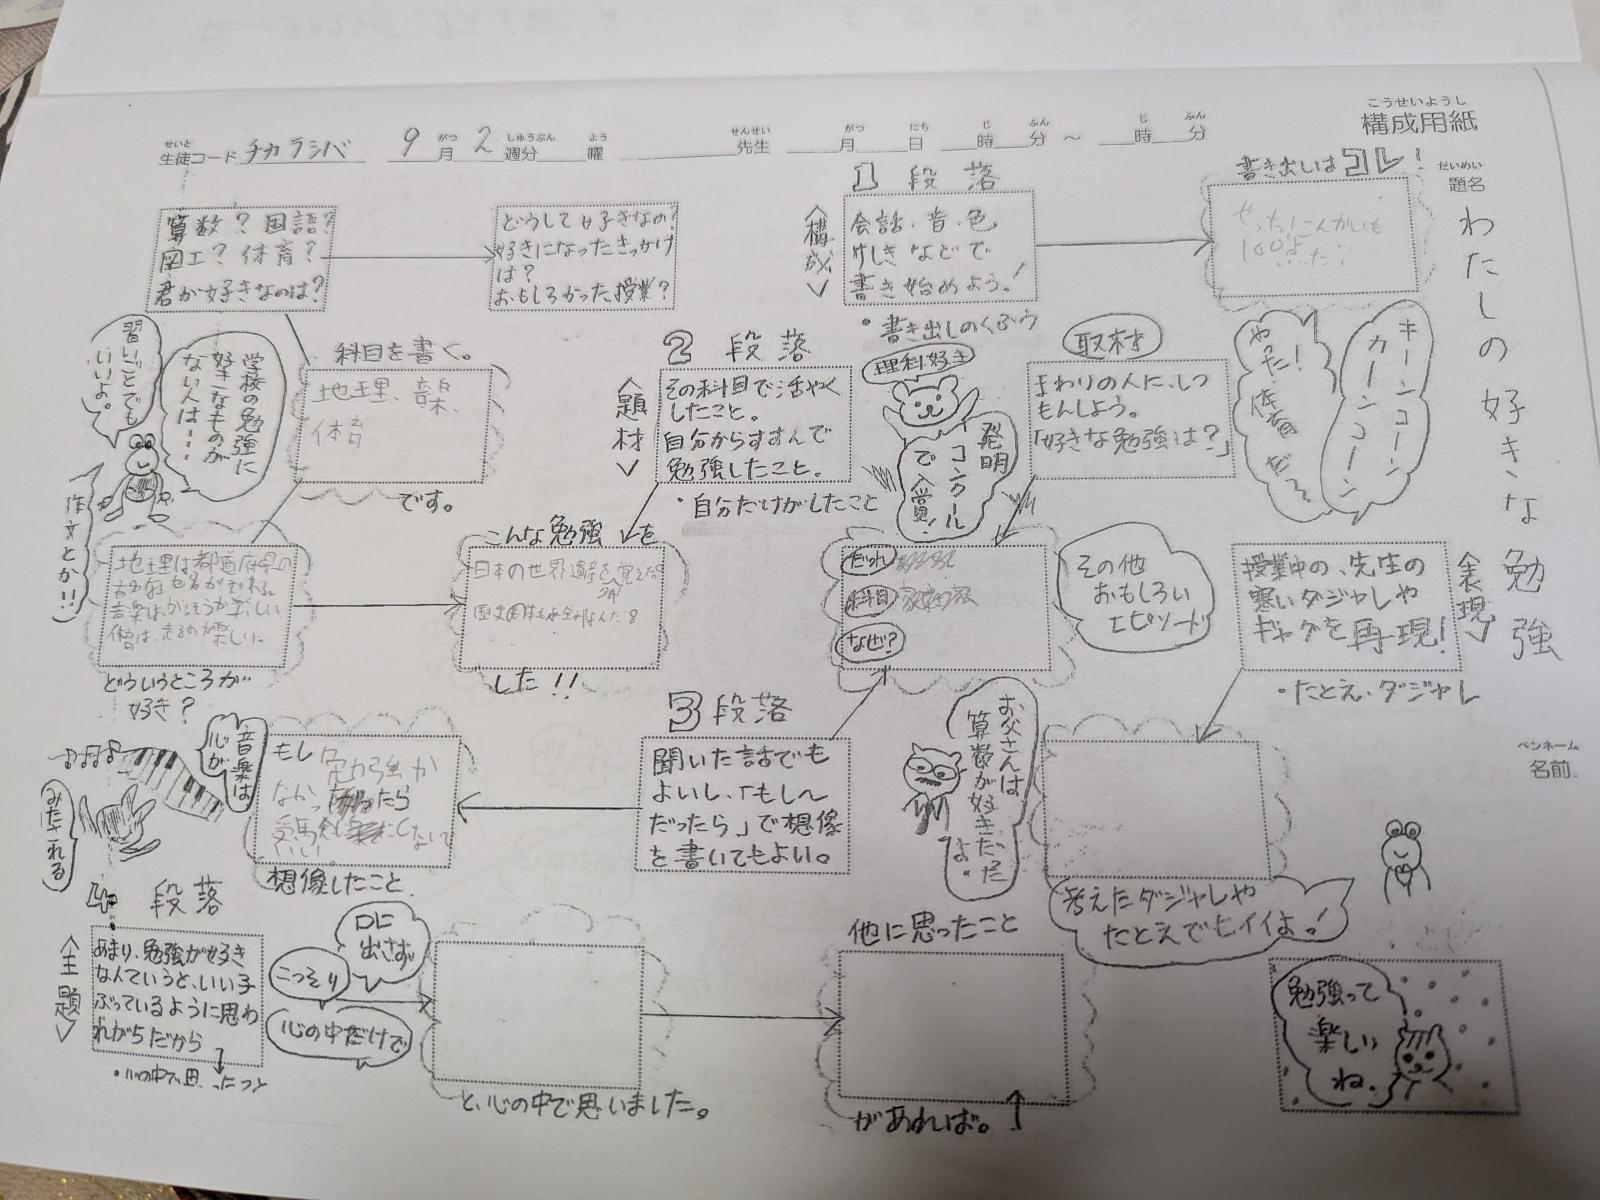 こうせいようし
構成用紙
せいと
生徒コード チカラシバ 9 がつ 月 2 しゅうぶん 週分 よう 曜 せんせい 先生 がつ 月 にち 日 じ 時 ふん 分 ～ じ 時 ふん 分
だいめい
題名
わたしの好きな勉強
ペンネーム
名前
1段落
<構成>
会話、音、色、
けしきなどで
書き始めよう!
・書き出しのくふう
書き出しはコレ!
やった!こんかいも
100点だ!
キーンコーン
カーンコーン
やった!
体育だぁ
算数?国語?
図工?体育?
君が好きなのは?
どうして好きなの?
好きになったきっかけ
は?
おもしろかった授業?
科目を書く。
地理、音楽、
体育
です。
学校の勉強に
好きなものが
ない人は・・・
習いごとでも
いいよ。
作文とか!!
地理は都道府県の
音楽は、がっそうが楽しい
体育は、走るのが楽しい
どういうところが
好き?
2段落
<題材>
その科目で活やく
したこと。
自分からすすんで
勉強したこと。
・自分だけがしたこと
こんな勉強を
日本の世界遺産を覚えた。
した!!
理科好き
発明
コンクール
で入賞!
取材
まわりの人に、しつ
もんしよう。
「好きな勉強は?」
だれ
科目 家庭科
なぜ?
その他
おもしろい
エピソード
<表現>
授業中の、先生の
寒いダジャレや
ギャグを再現!
・たとえ、ダジャレ
考えたダジャレや
たとえでもイイよ!
3段落
聞いた話でも
よいし、「もし～
だったら」で想像
を書いてもよい。
お父さんは
算数が好きだった
よ。
もし勉強が
なかったら
受験しなくて
いい。
想像したこと
音楽は
心が
みたされる
4段落
<主題>
あまり、勉強が好き
なんていうと、いい子
ぶっているように思わ
れがちだから
・心の中で思ったこと
口に
出さず
こっそり
心の中だけで
と、心の中で思いました。
他に思ったこと
があれば。
勉強って
楽しい
ね。